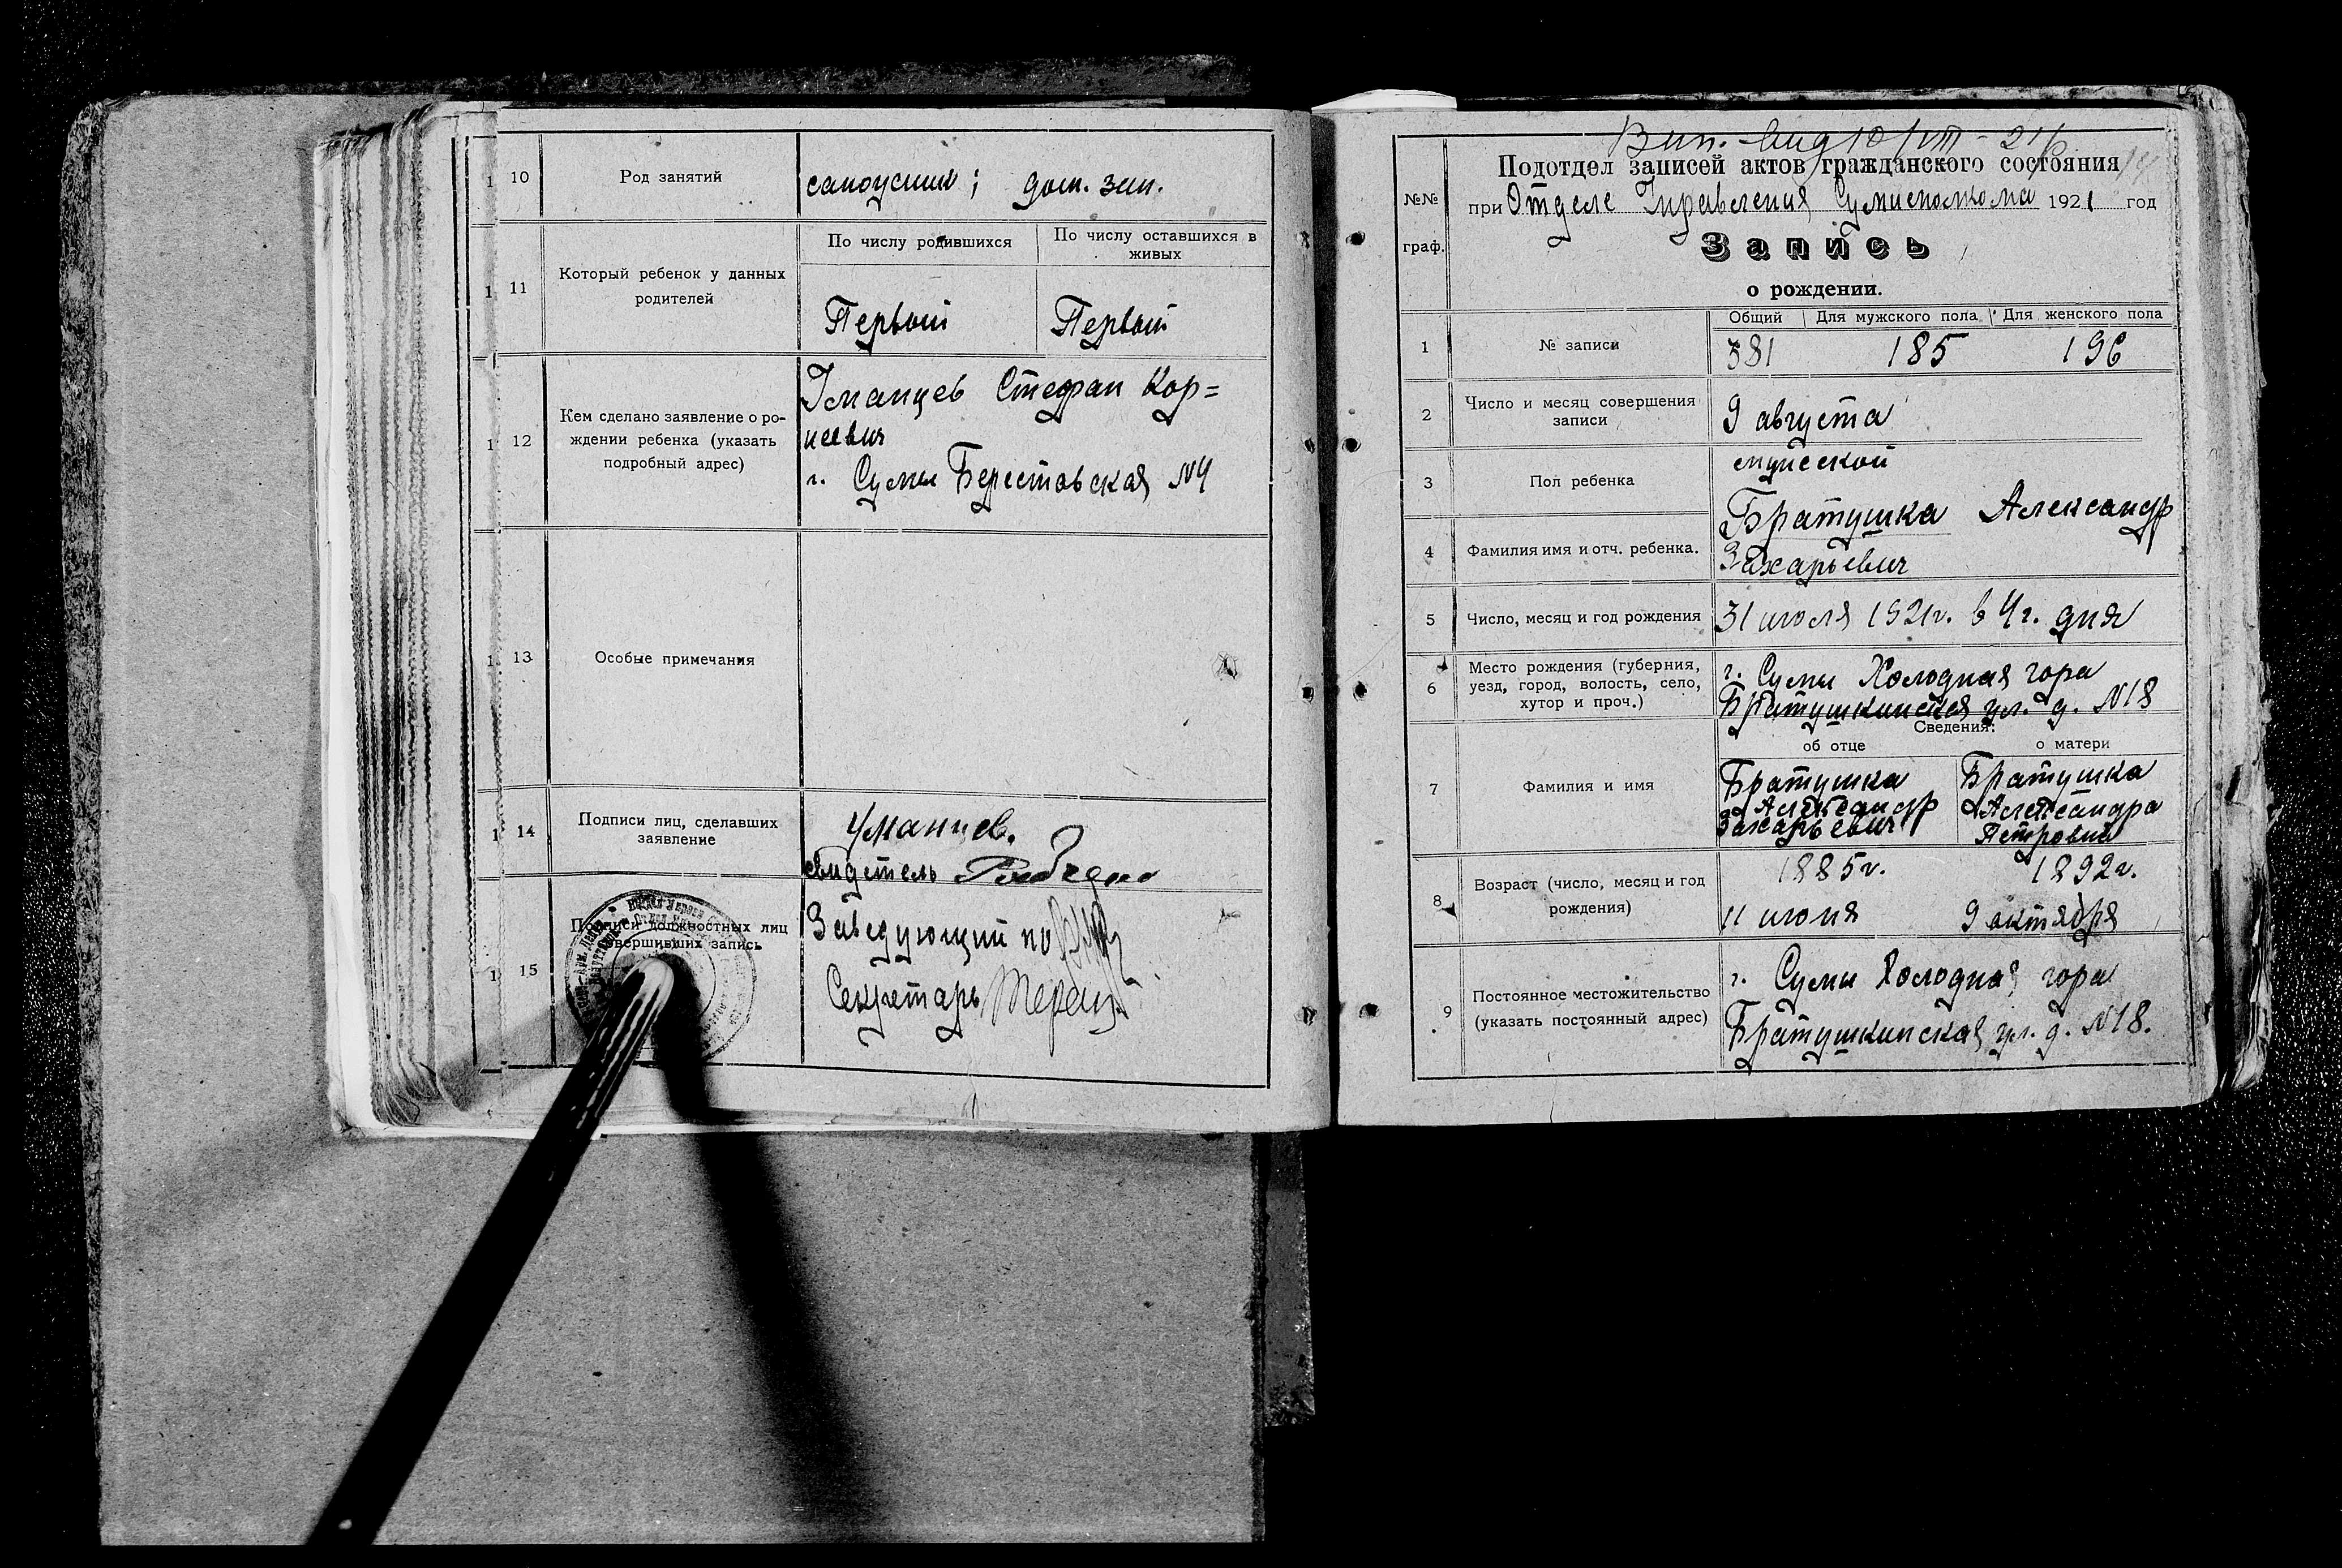 1 10 Род занятий сапожник; дом. зан.
1 11 Который ребенок у данных родителей
По числу родившихся По числу оставшихся в живых
Первый Первый
1 12 Кем сделано заявление о ро-
ждении ребенка (указать
подробный адрес)
Уманцев Стефан Кор=
неевич
г. Сумы Берестовская №4
1 13 Особые примечания
1 14 Подписи лиц, сделавших
заявление
Уманцев.
свидетель
1 15 Подписи должностных лиц
совершивших запись
Заведующий
Секретарь
Подотдел записей актов гражданского состояния
при Отделе Управления Сумисполкома 1921 год
№№
граф.
Запись
о рождении.
Общий Для мужского пола Для женского пола
1 № записи 381 185 196
2 Число и месяц совершения
записи
9 августа
3 Пол ребенка мужской
4 Фамилия имя и отч. ребенка.
Братушка Александр
Захарьевич
5 Число, месяц и год рождения 31 июля 1921г. в 4 г. дня
6 Место рождения (губерния,
уезд, город, волость, село,
хутор и проч.)
г. Сумы Холодная гора
Братушкинская ул. д. №18
Сведения:
об отце о матери
7 Фамилия и имя
Братушка Братушка
Александр Александра
Захарьевич Петровна
8 Возраст (число, месяц и год
рождения)
1885г. 1892г.
11 июня 9 октября
9 Постоянное местожительство
(указать постоянный адрес)
г. Сумы Холодная гора
Братушкинская ул. д. №18.